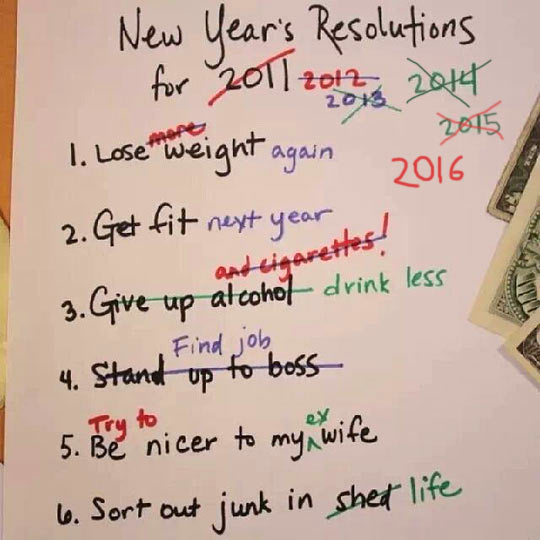 New Year's Resolutions
for 2011 2012 2014
2013
2015
2016
more
1. Lose weight again
2. Get fit next year
and cigarettes!
3. Give up alcohol drink less
Find job
4. Stand up to boss
Try to ex
5. Be nicer to my wife
6. Sort out junk in shed life